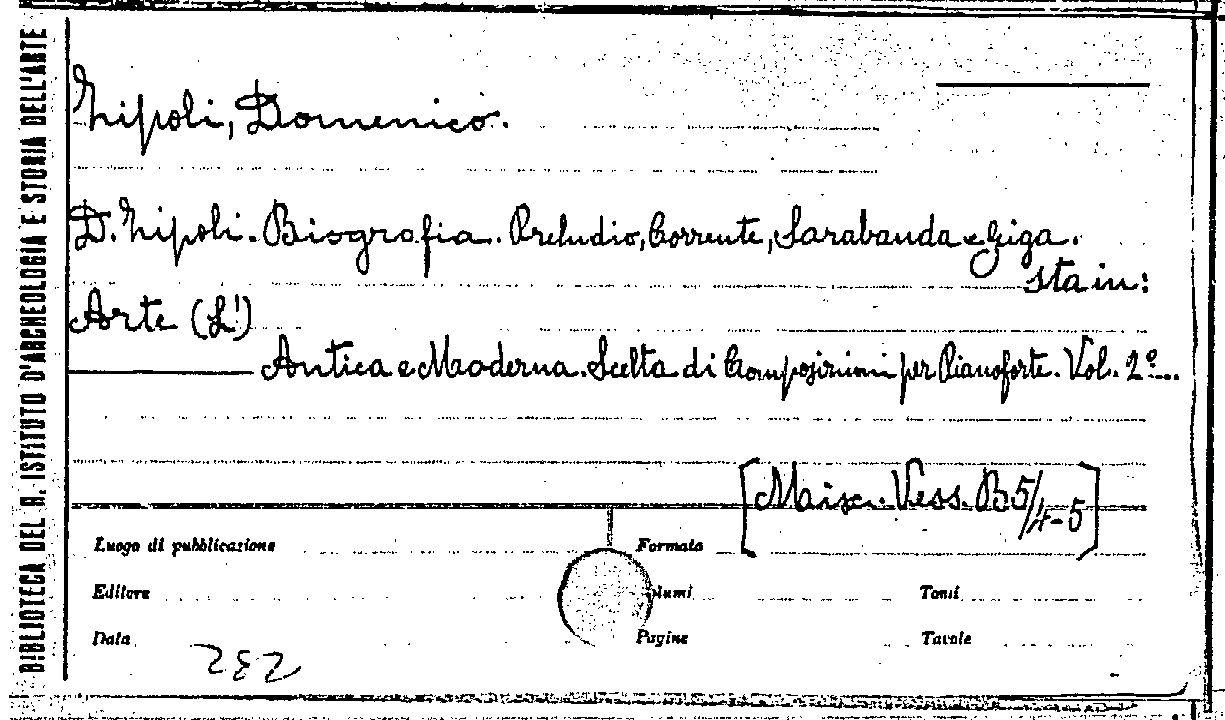 BIBLIOTECA DEL R. ISTITUTO D'ARCHEOLOGIA E STORIA DELL'ARTE
Zipoli, Domenico.
D. Zipoli. Biografia. Preludio, Corrente, Sarabanda e Giga.
sta in:
Arte (L')
Antica e Moderna. Scelta di Composizioni per Pianoforte. Vol. 2º...
[Misc. Vess. B 5/4-5]
Luogo di pubblicazione
Formato
Editore
Volumi
Tomi
Data
Pagine
Tavole